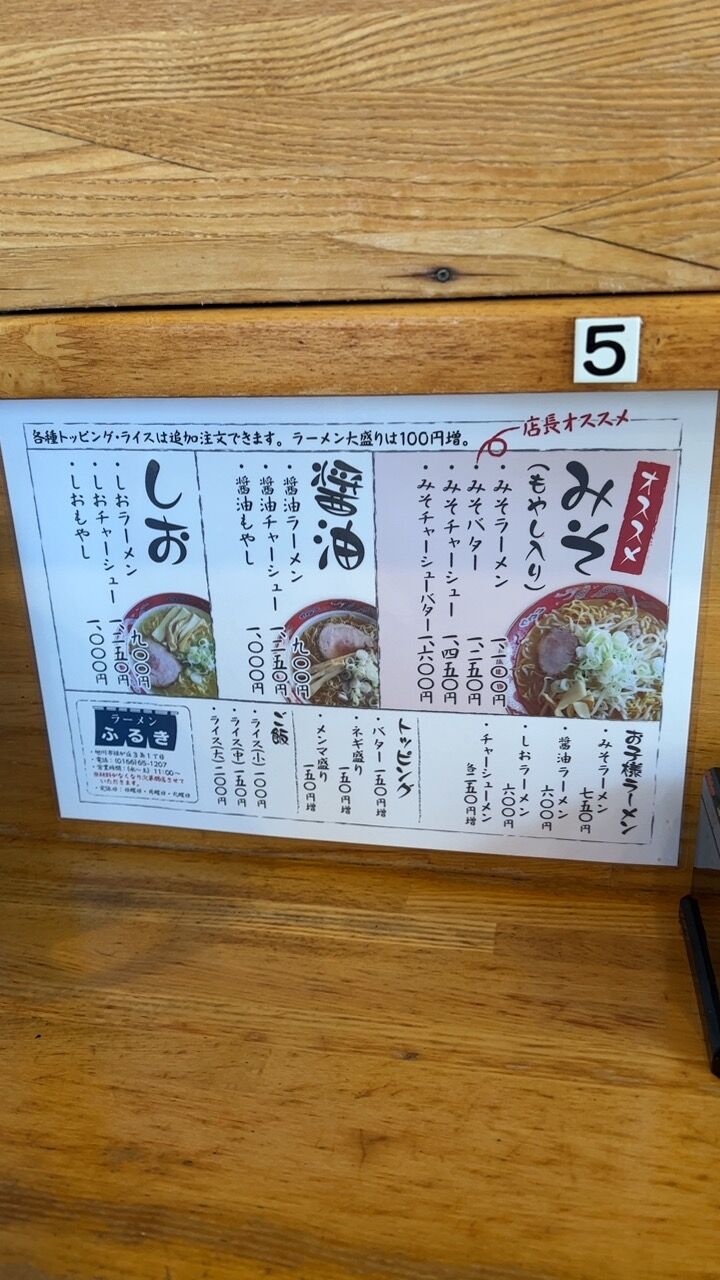 5
各種トッピング・ライスは追加注文できます。ラーメン大盛りは100円増。
店長オススメ
オススメ
みそ
(もやし入り)
・みそラーメン 一、一〇〇円
・みそバター 一、二五〇円
・みそチャーシュー 一、四五〇円
・みそチャーシューバター 一、六〇〇円
醤油
・醤油ラーメン 九〇〇円
・醤油チャーシュー 一、二五〇円
・醤油もやし 一、〇〇〇円
しお
・しおラーメン 九〇〇円
・しおチャーシュー 一、二五〇円
・しおもやし 一、〇〇〇円
お子様ラーメン
・みそラーメン 七五〇円
・醤油ラーメン 六〇〇円
・しおラーメン 六〇〇円
・チャーシューメン 各二五〇円増
トッピング
・バター 一五〇円増
・ネギ盛り 一五〇円増
・メンマ盛り 一五〇円増
ご飯
・ライス(小) 一〇〇円
・ライス(中) 一五〇円
・ライス(大) 二〇〇円
ラーメン
ふるき
・電話:(0166)65-1207
・営業時間:(水〜土) 11:00〜
※材料がなくなり次第閉店させて
いただきます。
・定休日:日曜日・月曜日・火曜日